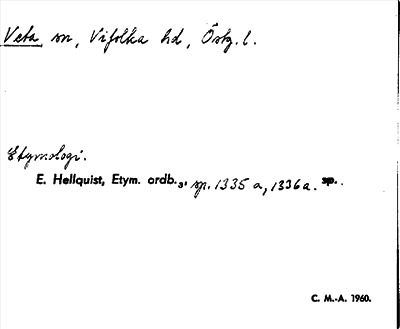 Veta sn, Vifolka hd, Östg. l.
Etymologi.
E. Hellquist, Etym. ordb.₃, sp. 1335 a, 1336 a. sp. .
C. M.-A. 1960.